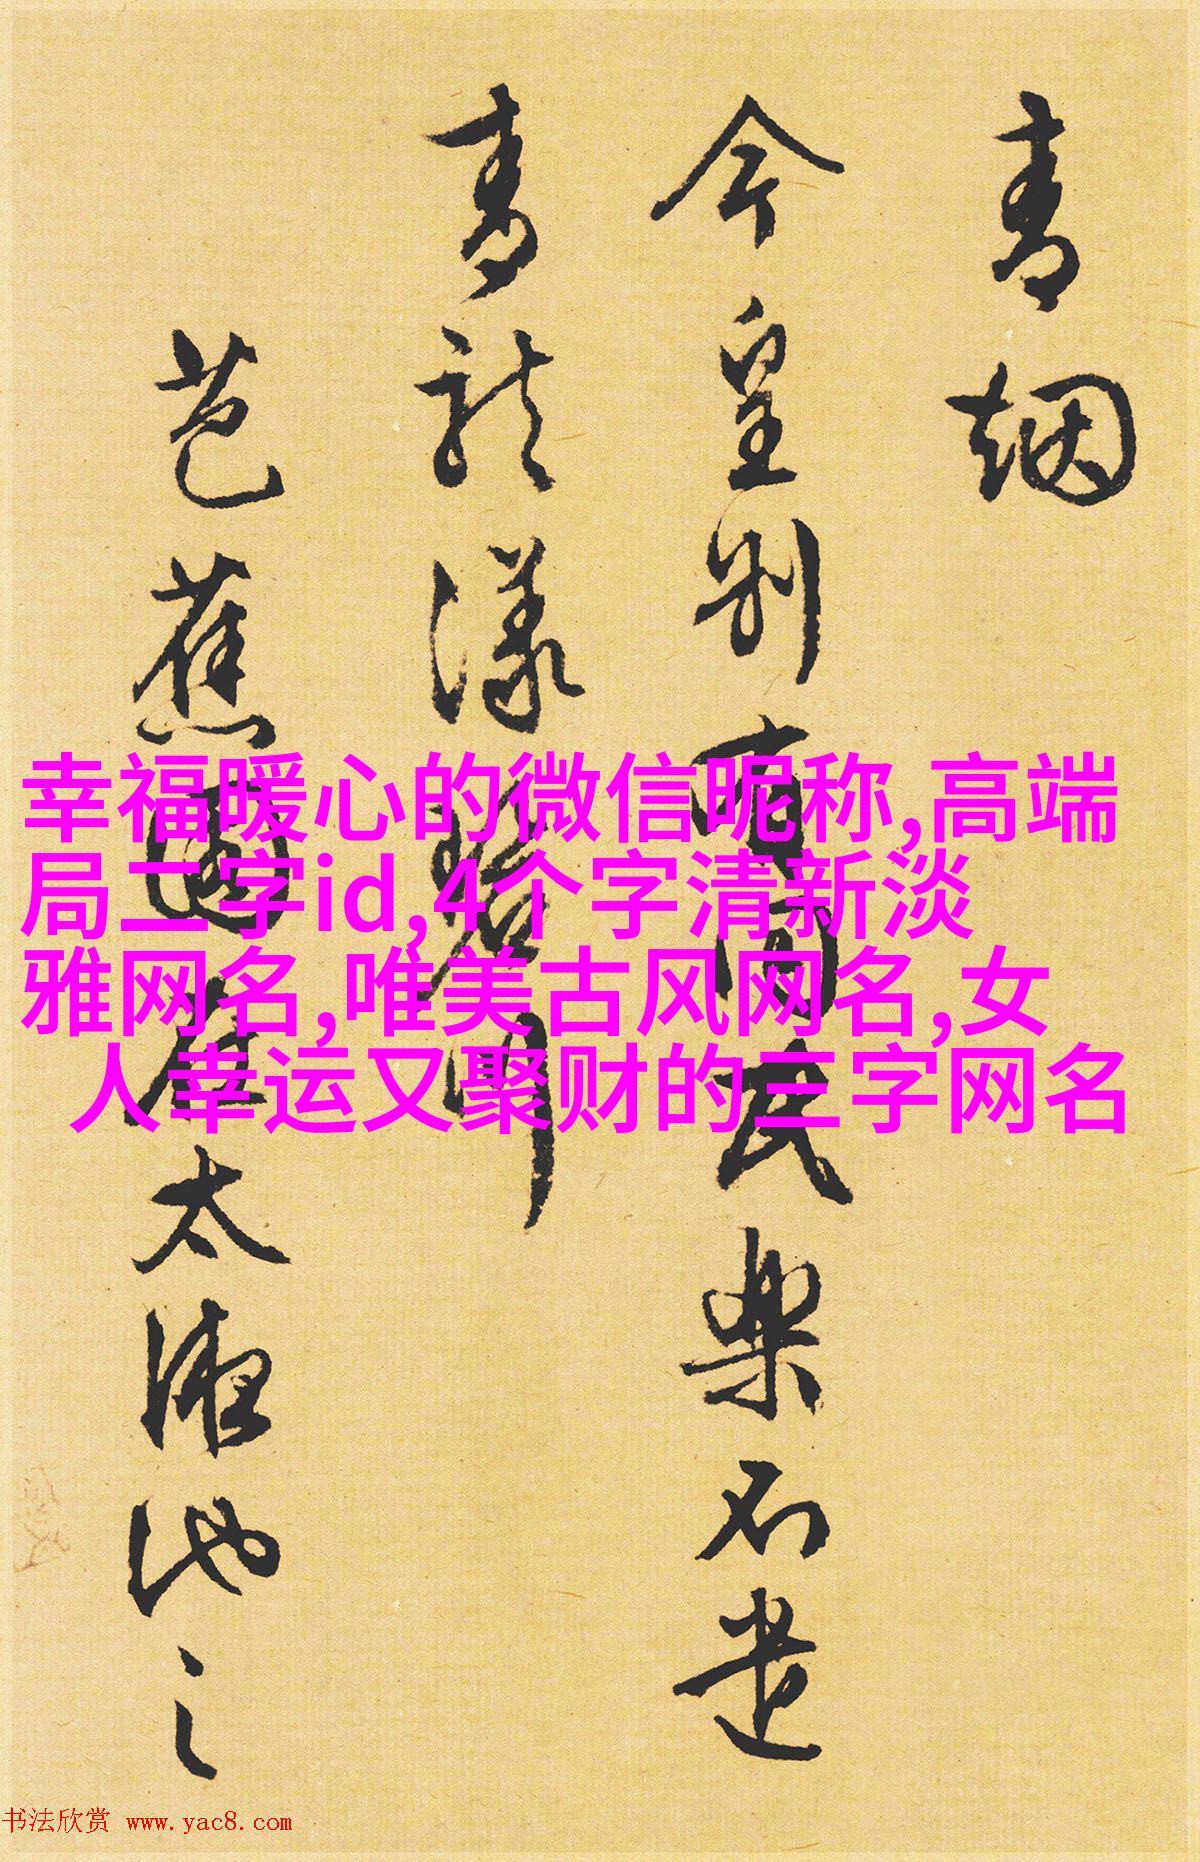 青烟
今皇别有同民乐石造
青龙漾碧川
芭蕉园在太液池之
幸福暖心的微信昵称,高端
局二字id,4个字清新淡
雅网名,唯美古风网名,女
人幸运又聚财的三字网名
书法欣赏 www.yac8.com